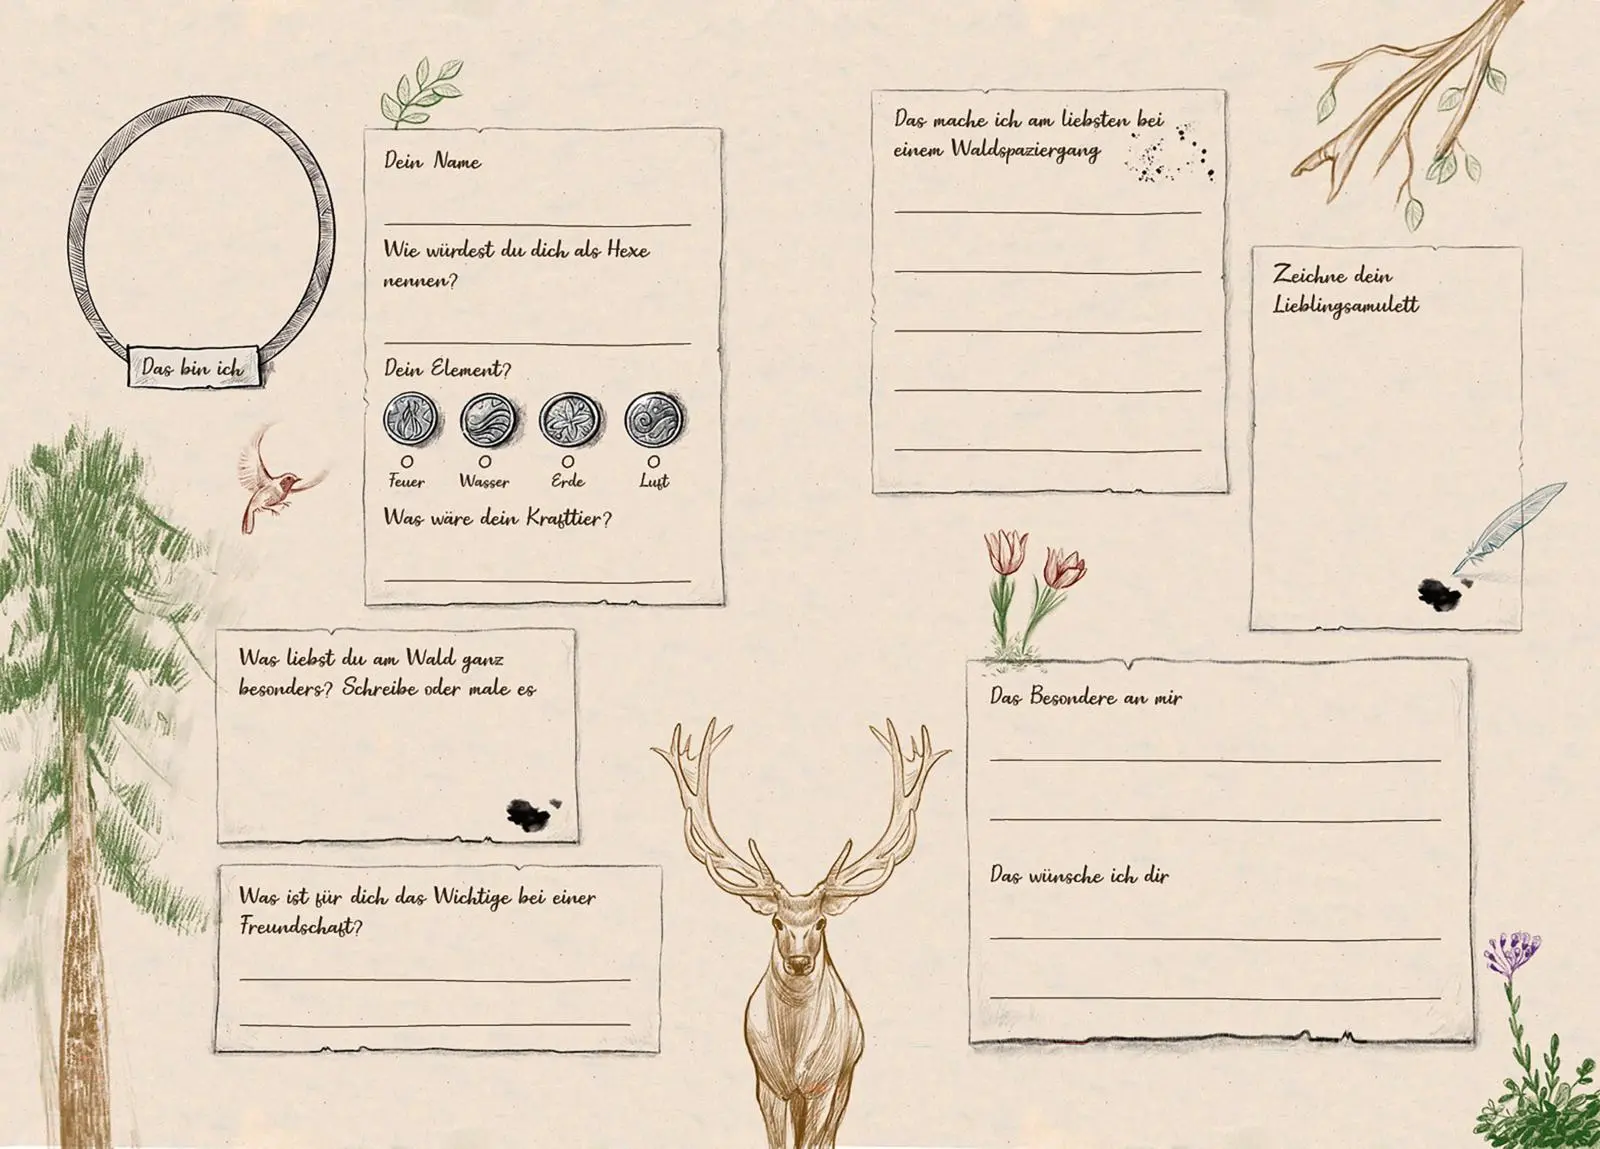 Das bin ich
Dein Name
Wie würdest du dich als Hexe
nennen?
Dein Element?
Feuer
Wasser
Erde
Luft
Was wäre dein Krafttier?
Was liebst du am Wald ganz
besonders? Schreibe oder male es
Was ist für dich das Wichtige bei einer
Freundschaft?
Das mache ich am liebsten bei
einem Waldspaziergang
Zeichne dein
Lieblingsamulett
Das Besondere an mir
Das wünsche ich dir